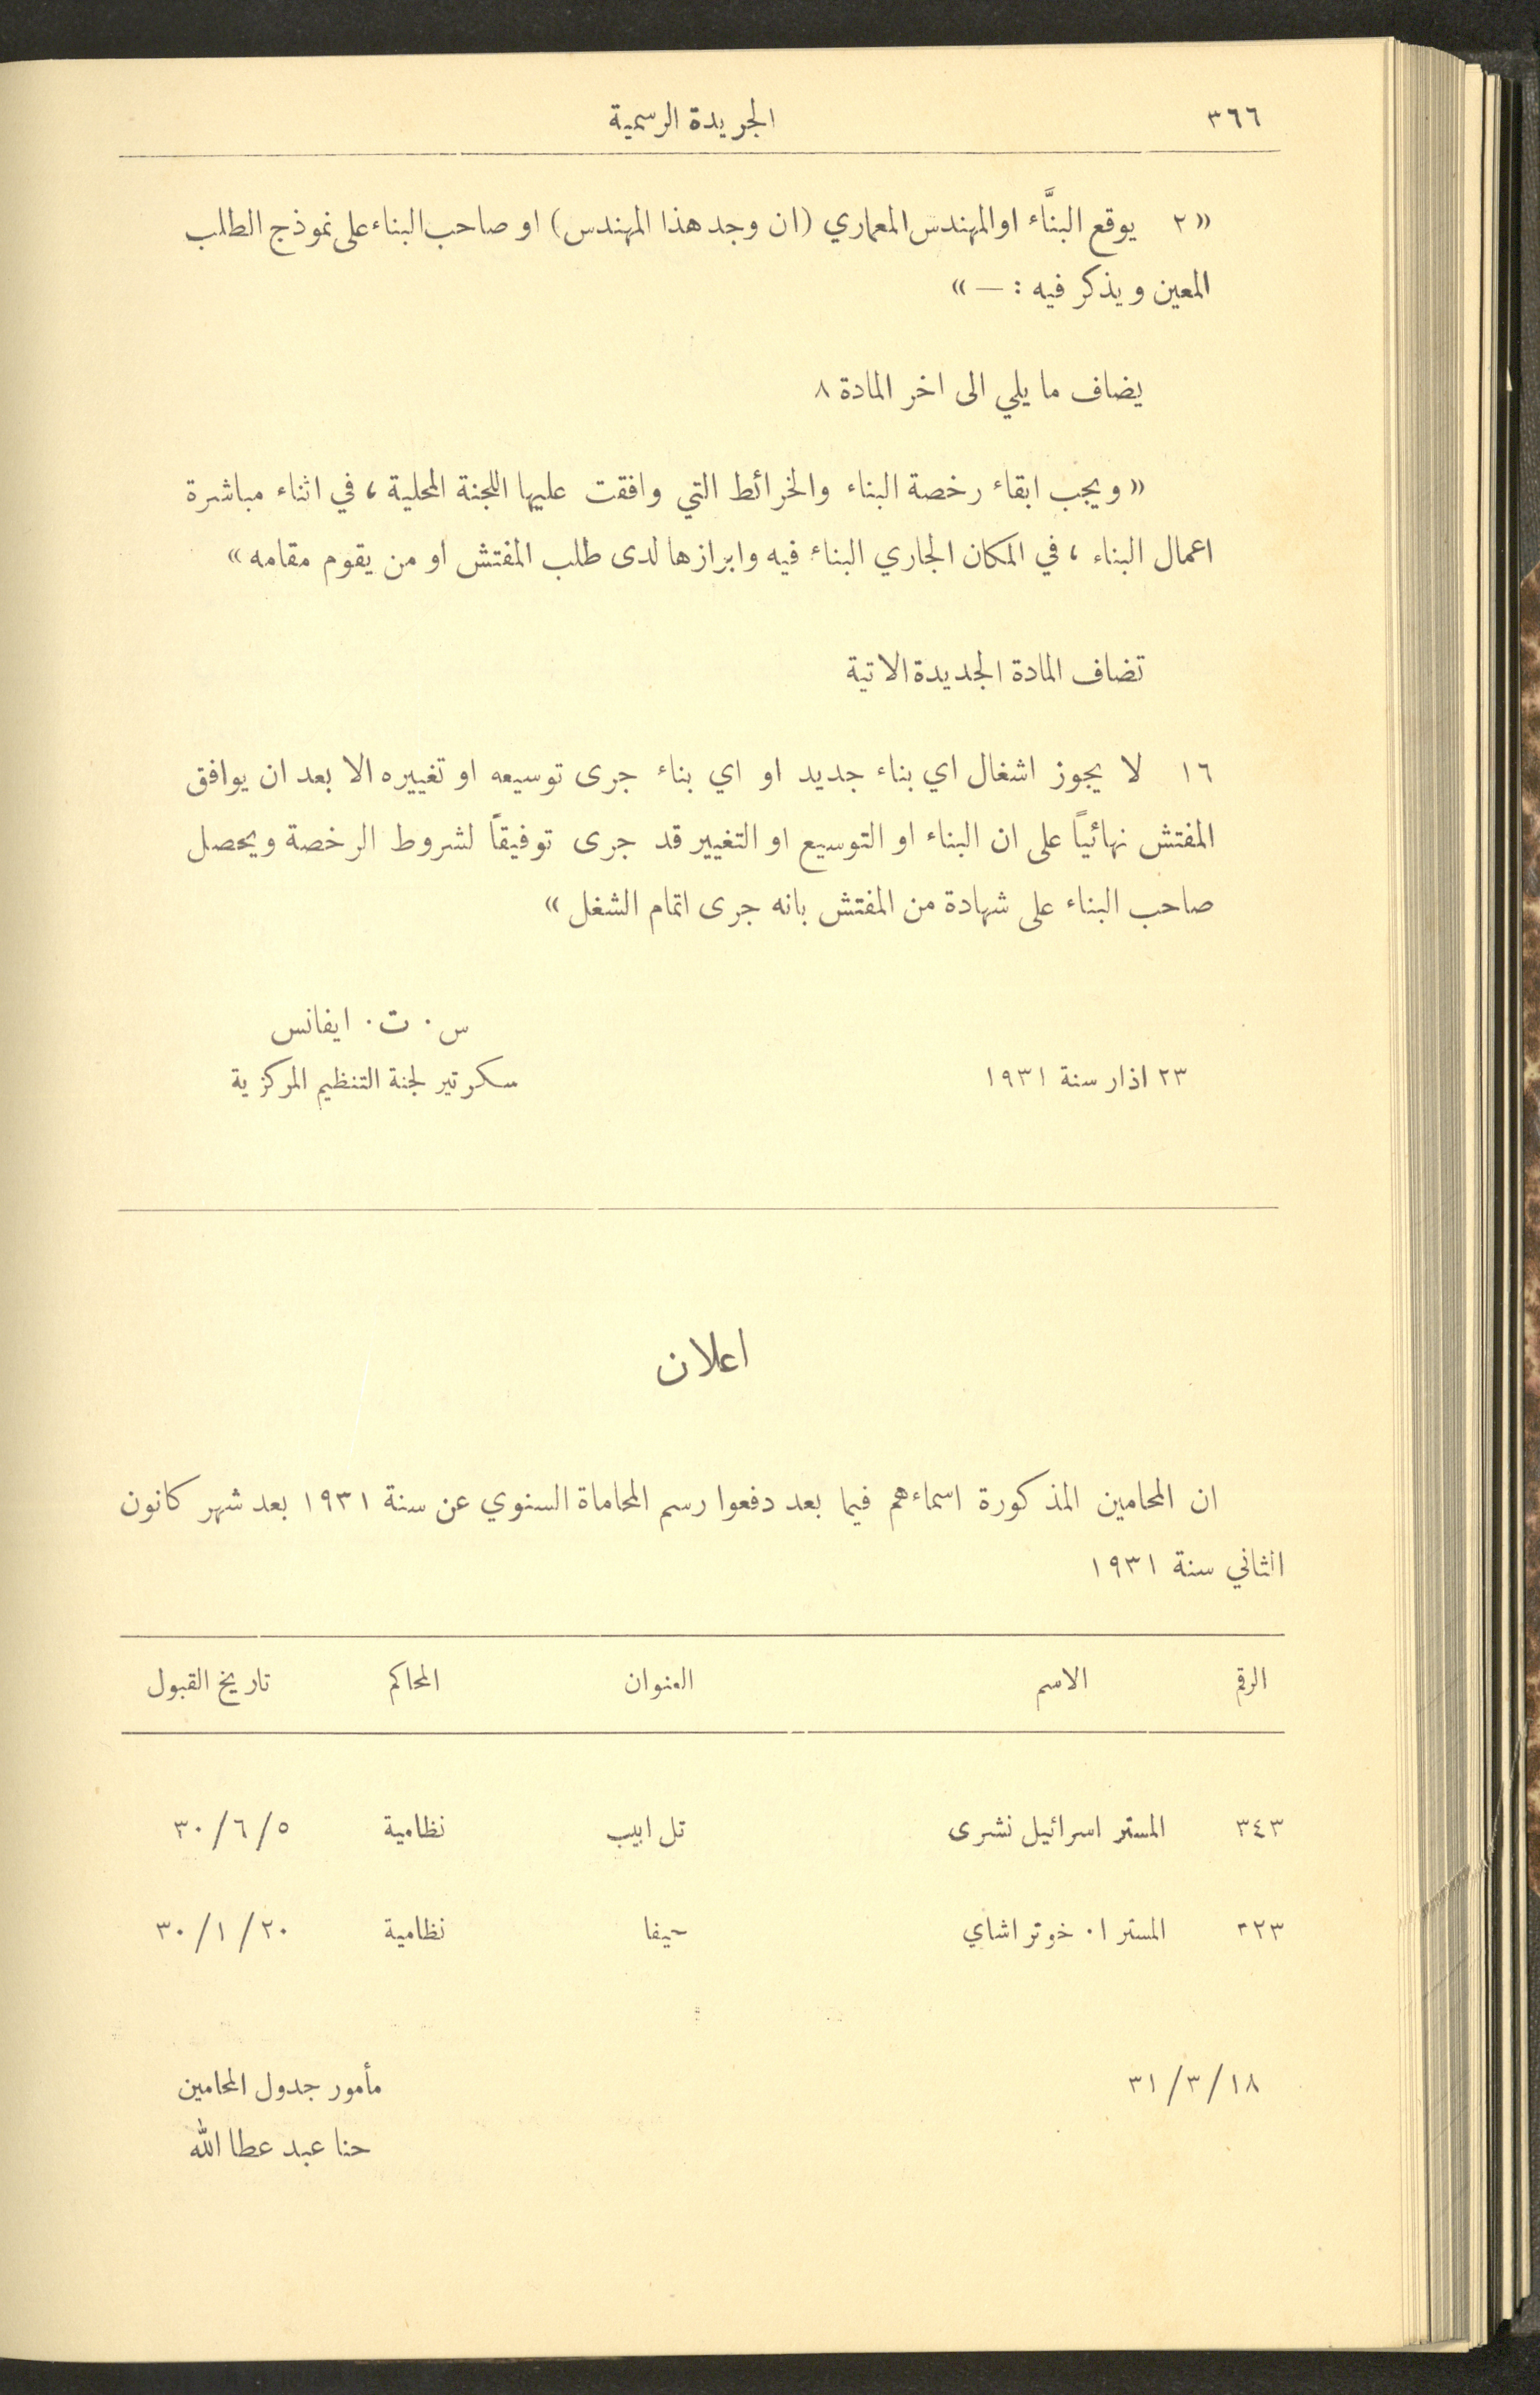 ٣٦٦
الجريدة الرسمية
« ٢ يوقع البنَّاء او المهندس المعماري (ان وجد هذا المهندس) او صاحب البناء على نموذج الطلب
المعين ويذكر فيه : — »
يضاف ما يلي الى اخر المادة ٨
« ويجب ابقاء رخصة البناء والخرائط التي وافقت عليها اللجنة المحلية ، في اثناء مباشرة
اعمال البناء ، في المكان الجاري البناء فيه وابرازها لدى طلب المفتش او من يقوم مقامه »
تضاف المادة الجديدة الاتية
١٦ لا يجوز اشغال اي بناء جديد او اي بناء جرى توسيعه او تغييره الا بعد ان يوافق
المفتش نهائياً على ان البناء او التوسيع او التغيير قد جرى توفيقاً لشروط الرخصة ويحصل
صاحب البناء على شهادة من المفتش بانه جرى اتمام الشغل »
س . ت . ايفانس
٢٣ اذار سنة ١٩٣١ سكرتير لجنة التنظيم المركزية
اعلان
ان المحامين المذكورة اسماءهم فيما بعد دفعوا رسم المحاماة السنوي عن سنة ١٩٣١ بعد شهر كانون
الثاني سنة ١٩٣١
الرقم الاسم العنوان المحاكم تاريخ القبول
٣٤٣ المستر اسرائيل نشرى تل ابيب نظامية ٣٠/٦/٥
المستر ا . خوتر اشاي حيفا نظامية ٣٠/١/٢٠
٣١/٣/١٨ مأمور جدول المحامين
حنا عبد عطا الله